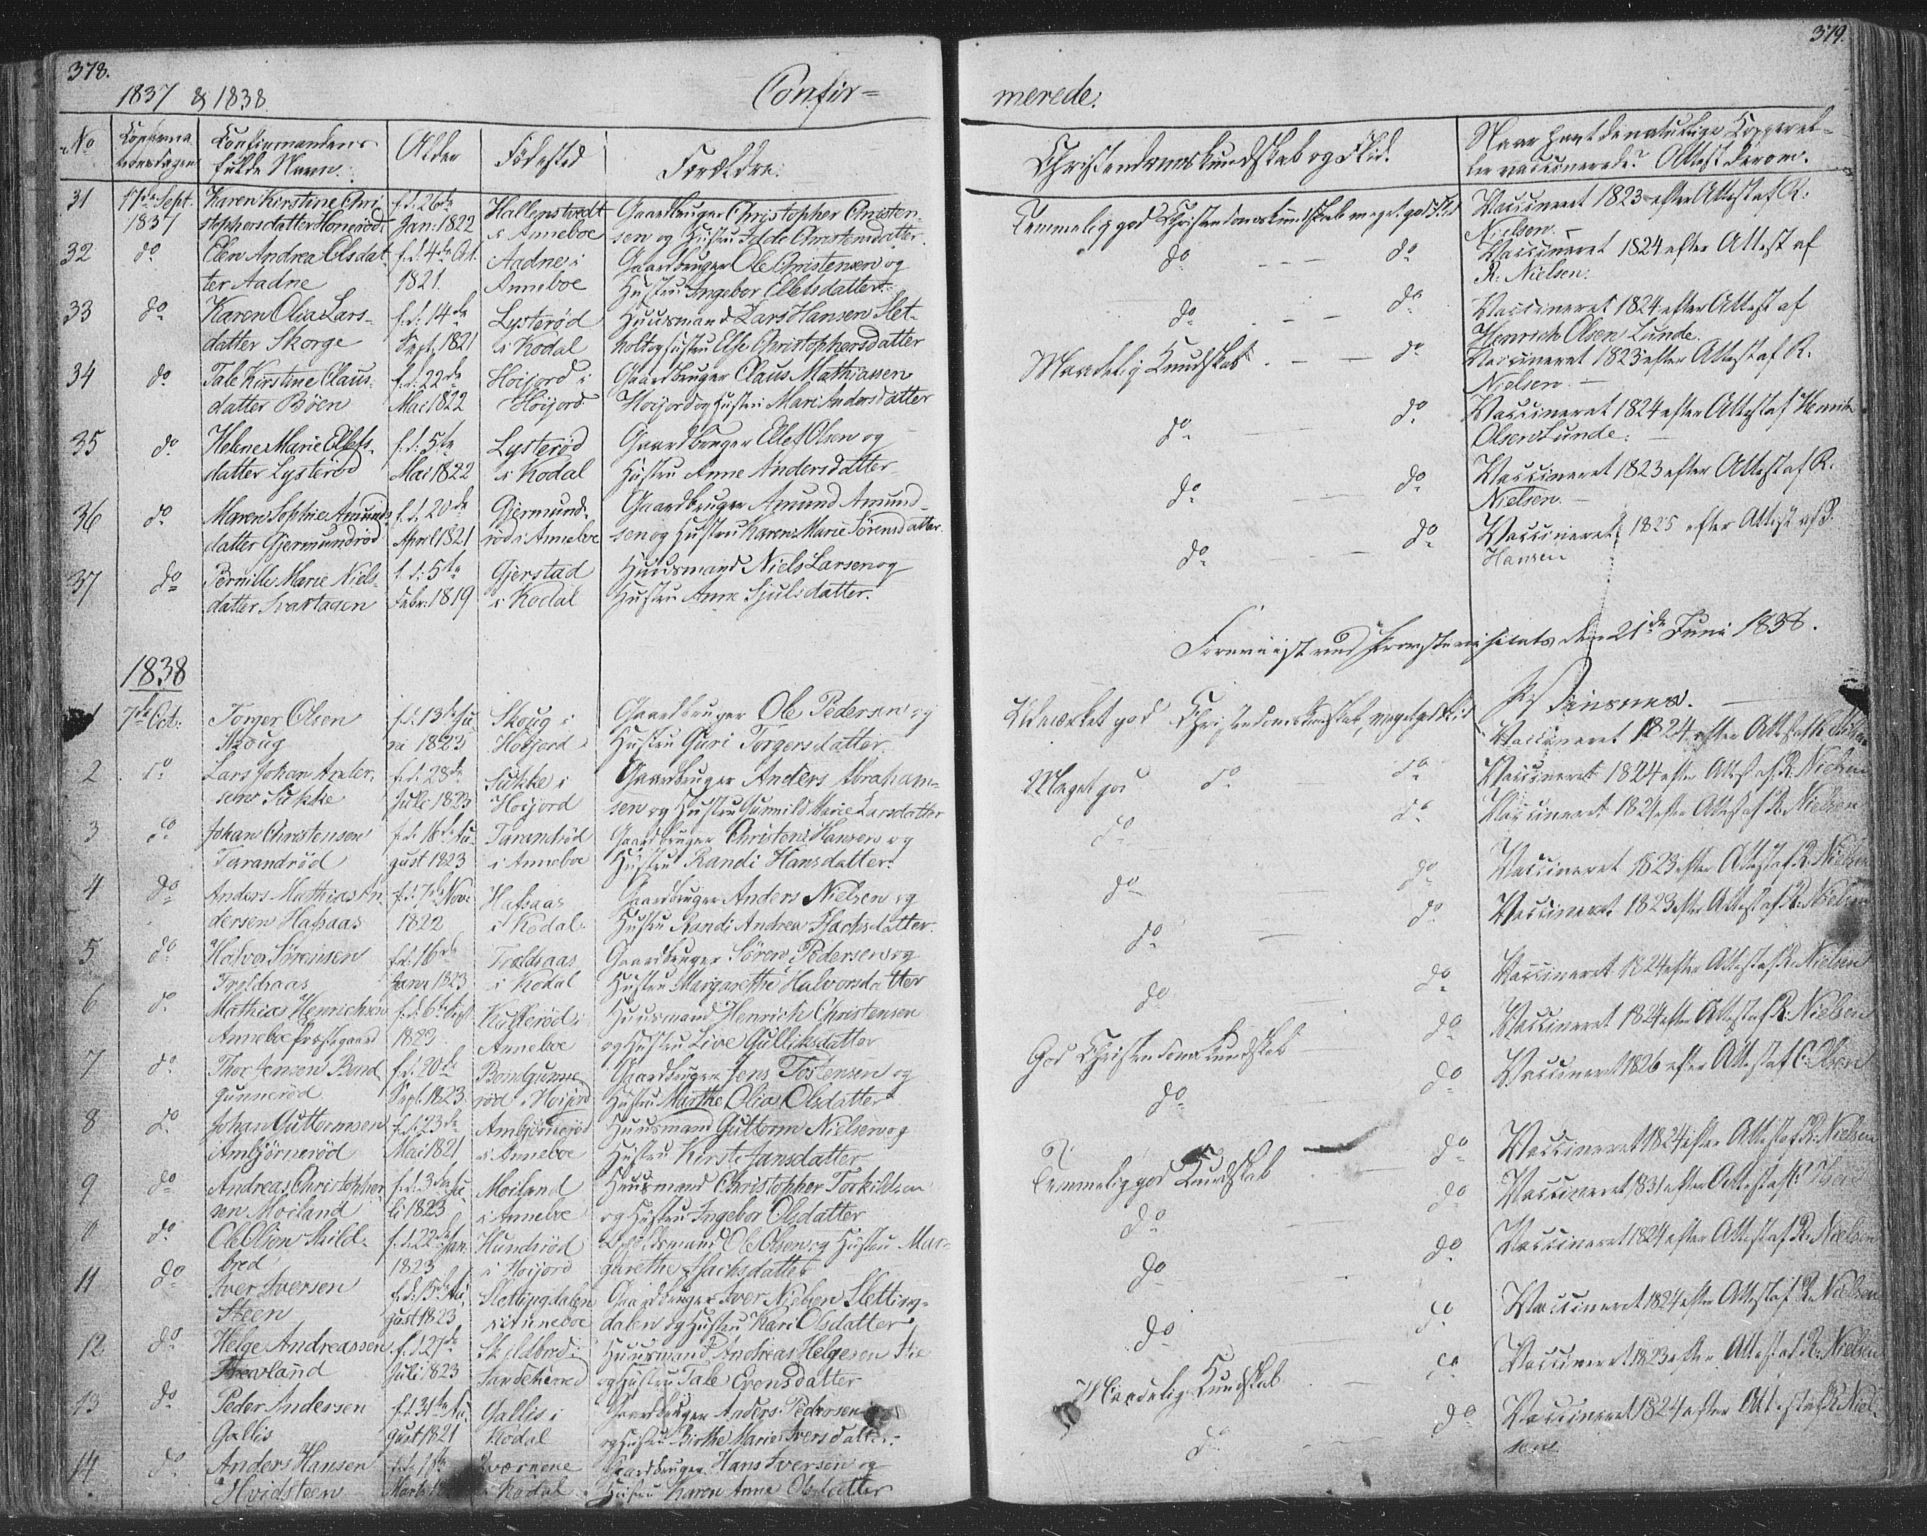 378.
1837 & 1838.
Confir-
No
Confirma-
tionsdagen
Confirmandens
fulde Navn.
Alder
Fødested
Forældre.
31 17de Sept. Karen Kirstine Chri- f. d. 26de Hallenstvedt Gaardbruger Christopher Christen-
1837 stophersdatter Honerød Jan: 1822 i Anneboe sen og Hustru Idde Christensdatter.
32 do Elen Andrea Olsdat- f. d. 4de Oct. Aadne i Gaardbruger Ole Christensen og
ter Aadne 1821. Anneboe Hustru Ingebor Ellefsdatter
33 do Karen Olia Lars- f. d. 14de Lysterød Huusmand Lars Hansen Slet-
datter Skorge Sept. 1821 i Kodal holt og Hustru Else Christophersdatter
34 do Tale Kirstine Claus- f. d. 22de Høijord i Gaardbruger Claus Mathiassen
datter Bøen Mai 1822 Høijord Høijord og Hustru Mari Andersdatter
35 do Helene Marie Ellefs- f. d. 5te Lysterød Gaardbruger Ellef Olsen og
datter Lysterød Mai 1822 i Kodal Hustru Anne Andersdatter
36 do Maren Sophie Amunds- f. d. 20de Gjermund- Gaardbruger Amund Amund-
datter Gjermundrød April 1821 rød i Anneboe sen og Hustru Karen Marie Sørensdatter
37 do Pernille Marie Niels- f. d. 5te Gjerstad Huusmand Niels Larsen og
datter Svartaaen Febr: 1819 i Kodal Hustru Anne Sjulsdatter.
1838
1 7de Oct: Torger Olsen f. d. 13de Ju- Skoug i Gaardbruger Ole Pedersen og
Skoug ni 1823 Høijord Hustru Guri Torgersdatter.
2 do Lars Johan Ander- f. d. 28de Sukke i Gaardbruger Anders Abraham-
sen Sukke Juli 1823 Høijord sen og Hustru Gunnild Marie Larsdatter
3 do Johan Christensen f. d. 16de Au- Tarandrød Gaardbruger Christen Hansen og
Tarandrød gust 1823 i Anneboe Hustru Randi Hansdatter.
4 do Anders Mathias An- f. d. 7de Nov: Hafsaas Gaardbruger Anders Nielsen og
dersen Hafsaas 1822 i Kodal Hustru Randi Andrea Isachsdatter.
5 do Halvor Sørensen f. d. 16de Troldsaas Gaardbruger Søren Pedersen og
Troldsaas Janr 1823 i Kodal Hustru Margarethe Halvorsdatter
6 do Mathias Henrichsen f. d. 6te Sept Huusmand Henrich Christensen
Anneboe Præstegaard 1823 Anneboe og Hustru Live Gulliksdatter
7 do Thor Jensen Bond- f. d. 20de Bondgunne- Gaardbruger Jens Tostensen og
gunnerød Sept. 1823 rød i Høijord Hustru Marthe Olia Olsdatter
8 do Johan Guttormsen f. d. 23de Ambjørnrød Huusmand Guttorm Nielsen og
Ambjørnerød Mai 1821 i Anneboe Hustru Kirsti Jansdatter
9 do Andreas Christopher- f. d. 3de Ju- Moiland Huusmand Christopher Torkildsen
sen Moiland li 1823 i Anneboe og Hustru Ingebor Olsdatter
do Ole Olsen Skild- f. d. 22de Jan Hundrød Ole Olsen og Hustru Mar-
bred 1823 i Høijord garethe Isachsdatter
11 do Iver Iversen f. d. 15de Au- Slettingdalen Gaardbruger Iver Nielsen Sletting-
Steen gust 1823 i Anneboe dalen og Hustru Kari Olsdatter
12 do Helge Andreassen f. d. 27de Skildbred i Huusmand Andreas Helgesen
Juli 1823 Sandeherred og Hustru Tale Evensdatter
13 do Peder Andersen f. d. 31te Au- Gallis i Gaardbruger Anders Pedersen
Gallis gust 1821 Kodal og Hustru Birthe Marie Iversdatter
14 do Anders Hansen f. d. Gaardbruger Hans Iversen og
Hvidsteen Marts i Kodal Hustru Karen Anne Olsdatter
379.
merede.
Christendomskundskab og Flid.
Naar havt de naturlige Kopper el-
ler vaccinerede? Attest derom.
Temmelig god Christendomskundskab meget god Flid Vaccineret 1823 efter Attest af R:
Nielsen.
do do Vaccineret 1824 efter Attest af
R. Nielsen.
do do Vaccineret 1824 efter Attest af
Henrich Olsen Lunde.
Maadelig Kundskab do Vaccineret 1823 efter Attest af R.
Nielsen.
do do Vaccineret 1824 efter Attest af Henrich
Olsen Lunde.
do do Vaccineret 1823 efter Attest af R.
Nielsen.
do do Vaccineret 1825 efter Attest af
Hansen
Foreviist ved Provstevisitats den 21de Juni 1838.
Udmærket god Christendomskundskab, meget god Flid Vaccineret 1824 efter Attest af
Meget god do do Vaccineret 1824 efter Attest af R. Nielsen
do do Vaccineret 1824 efter Attest af R. Nielsen
do do Vaccineret 1823 efter Attest af R. Nielsen
do do Vaccineret 1823 efter Attest af R. Nielsen
do do Vaccineret 1824 efter Attest af R. Nielsen
God Christendomskundskab do Vaccineret 1824 efter Attest af R. Nielsen
do do Vaccineret 1826 efter Attest af C. Olsen
Temmelig god Kundskab do Vaccineret 1824 efter Attest af R. Nielsen
do do Vaccineret 1831 efter Attest af
do do Vaccineret 1824 efter Attest af R. Nielsen
do do Vaccineret 1824 efter Attest af R. Nielsen
Maadelig Kundskab do Vaccineret 1823 efter Attest af R. Nielsen
do do Vaccineret 1824 efter Attest af R. Niel-
sen